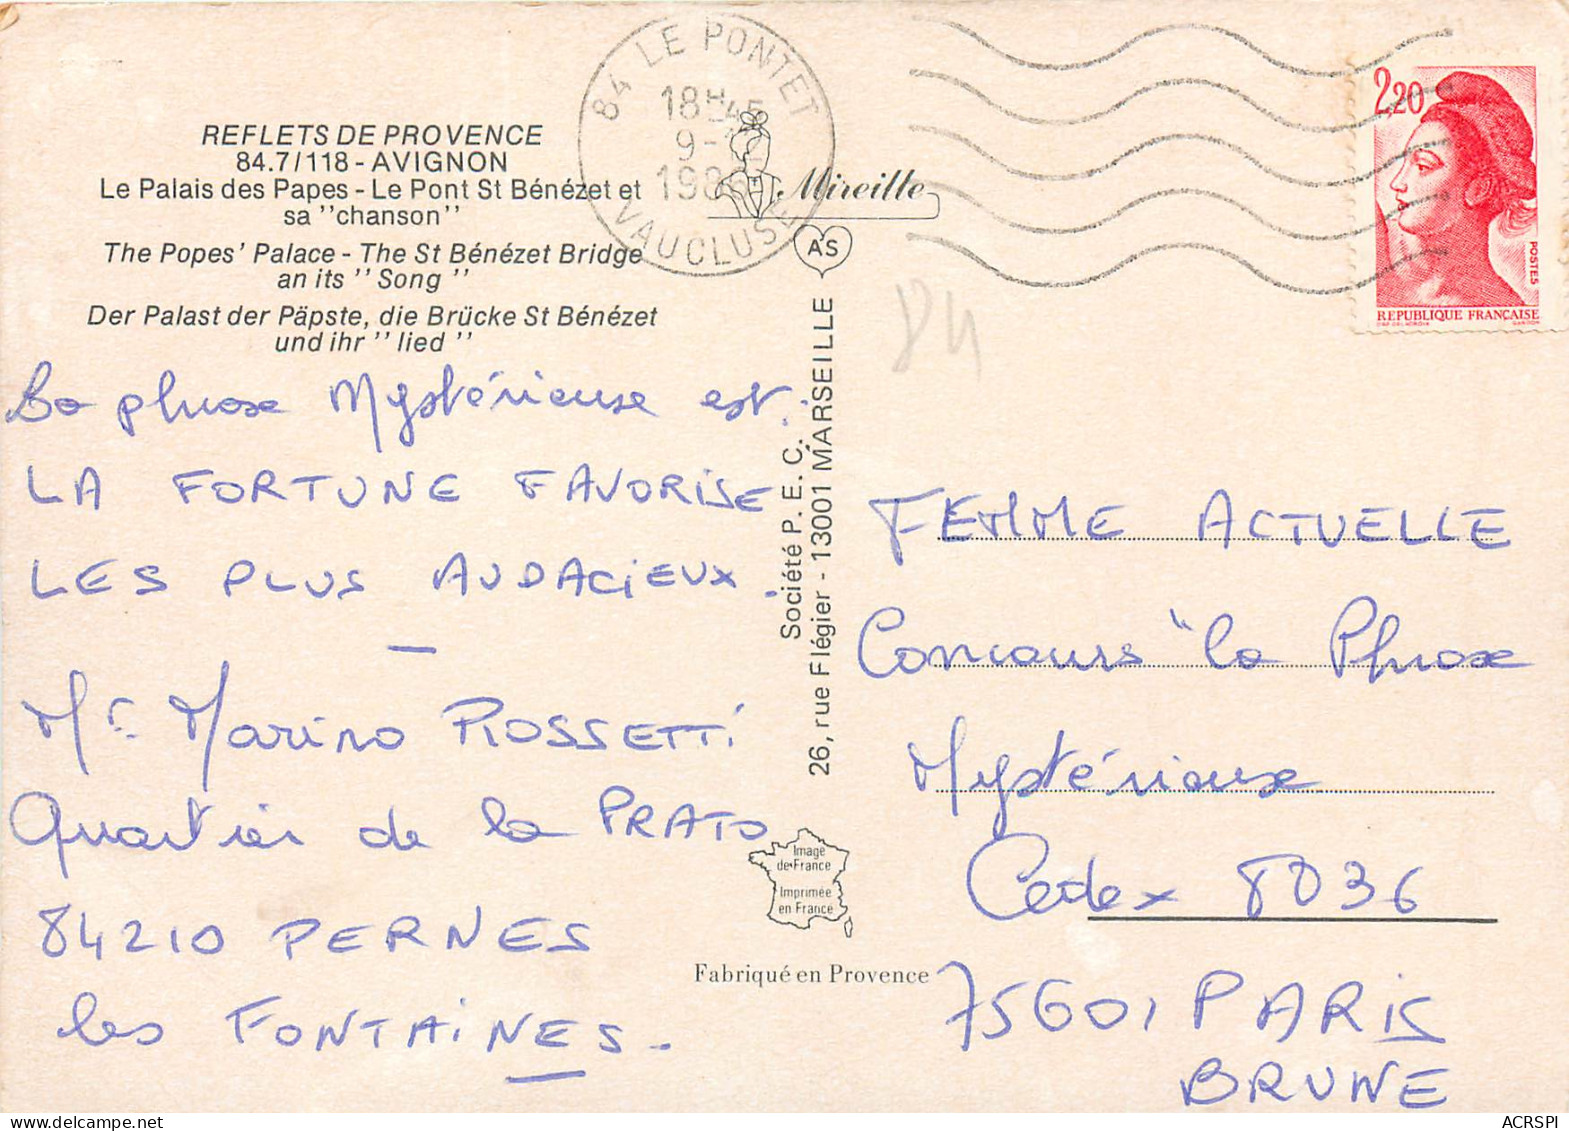 REFLETS DE PROVENCE
84.7/118 - AVIGNON
Le Palais des Papes - Le Pont St Bénézet et
sa "chanson"
The Popes' Palace - The St Bénézet Bridge
an its "Song"
Der Palast der Päpste, die Brücke St Bénézet
und ihr "lied"
84 LE PONTET
18H45
9-
198
VAUCLUSE
Mireille
AS
2,20
POSTES
REPUBLIQUE FRANÇAISE
84
La phrase Mystérieuse est :
LA FORTUNE FAVORISE
LES PLUS AUDACIEUX.
—
Mr Marino ROSSETTI
Quartier de la PRATO
84210 PERNES
les FONTAINES.
Société P. E. C.
26, rue Flégier - 13001 MARSEILLE
Image
de France
Imprimée
en France
Fabriqué en Provence
FEMME ACTUELLE
Concours "la Phrase
Mystérieuse
Cedex 8036
75601 PARIS
BRUNE
ACRSPI